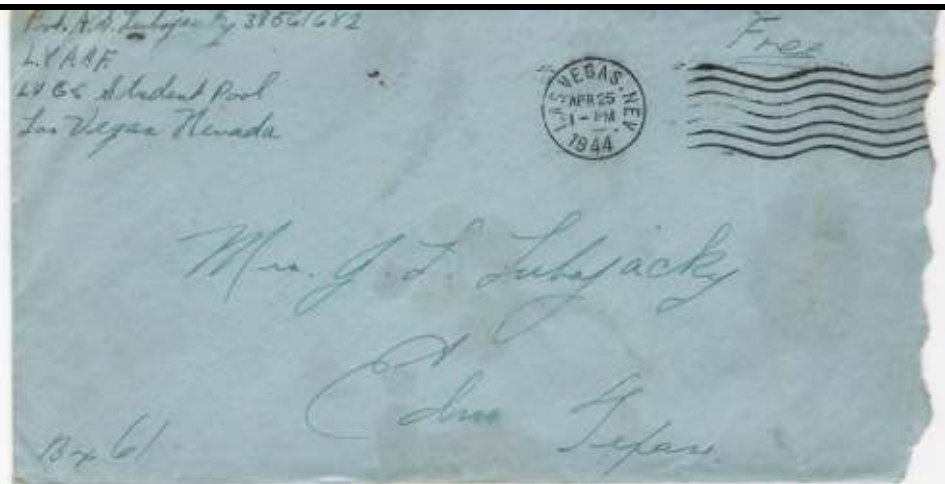 Pvt. A. D. Lubojacky 38561682
LVAAF
LVGS Student Pool
Las Vegas Nevada
Free
LAS VEGAS, NEV.
APR 25
1 - PM
1944
Mrs. J. L. Lubojacky
Edna Texas
Box 61